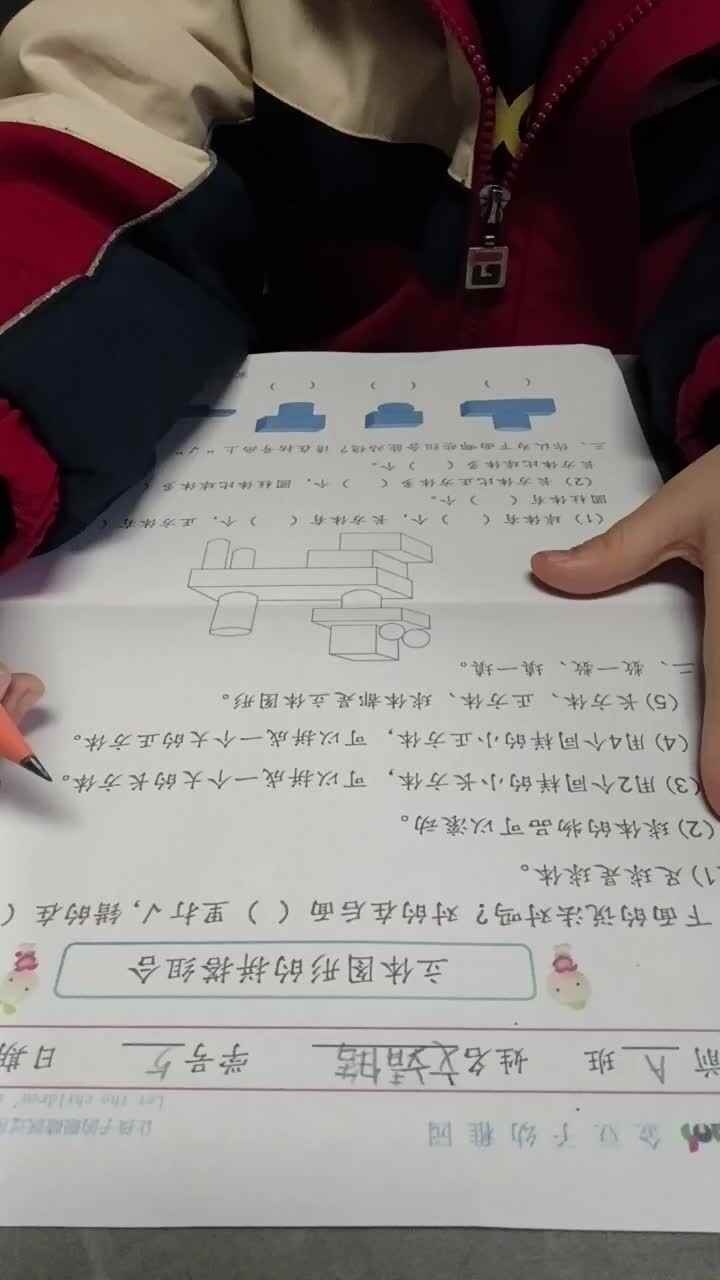 金豆子幼稚园
Let the children'
前 A 班 姓名 学号 5 日期
立体图形的拼搭组合
下面的说法对吗？对的在后面（ ）里打√,错的在（
(1)足球是球体。
(2)球体的物品可以滚动。
(3)用2个同样的小长方体，可以拼成一个大的长方体。
(4)用4个同样的小正方体，可以拼成一个大的正方体。
(5)长方体、正方体、球体都是立体图形。
二、数一数、填一填。
(1)球体有（ ）个，长方体有（ ）个，正方体有（
圆柱体有（ ）个。
(2)长方体比正方体多（ ）个，圆柱体比球体多（
长方体比球体多（ ）个。
三、你认为下面哪些组合能站稳？请在括号画上"√"
（ ） （ ） （ ）